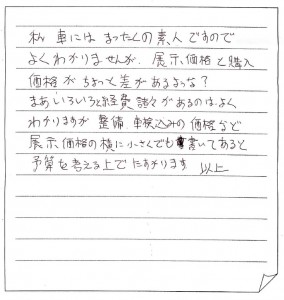 私 車には まったくの素人ですので
よくわかりませんが、展示価格と購入
価格がちょっと差があるような？
まあいろいろと経費 諸々があるのは、よく
わかりますが 整備 車検込みの価格など
展示価格の横に小さくでも書いてあると
予算を考える上でたすかります 以上